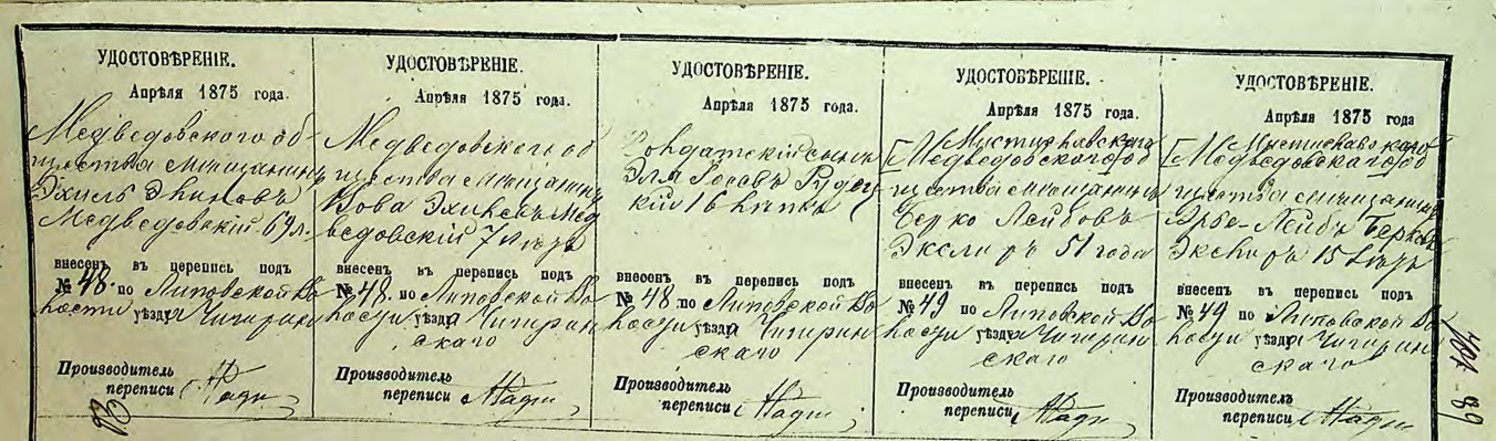 УДОСТОВѢРЕНІЕ.
Апрѣля 1875 года.
Медведовского об-
щества мѣщанинъ
Эхиль
Медведовскій 69 л.
внесенъ въ перепись подъ
№ 48. по Липовской Во
лости уѣзда Чигирин
Производитель
переписи
УДОСТОВѢРЕНІЕ.
Апрѣля 1875 года.
Медведовского об
щества мѣщанинъ
Вова Мед
ведовскій 7
внесенъ въ перепись подъ
№ 48. по Липовской Во
лости уѣзда Чигирин
скаго
Производитель
переписи
УДОСТОВѢРЕНІЕ.
Апрѣля 1875 года.
Солдатскій сынъ
Эля
кій 16
внесенъ въ перепись подъ
№ 48 по Липовской Во
лости уѣзда Чигирин
скаго
Производитель
переписи
УДОСТОВѢРЕНІЕ.
Апрѣля 1875 года.
Мстиславскаго
Медведовского об
щества мѣщанинъ
Берко Лейбовъ
51 года
внесенъ въ перепись подъ
№ 49 по Липовской Во
лости уѣзда Чигирин
скаго
Производитель
переписи
УДОСТОВѢРЕНІЕ.
Апрѣля 1875 года
Мстиславскаго
Медведовскаго об
щества мѣщанинъ
Лейбъ Берковъ
15
внесенъ въ перепись подъ
№ 49 по Липовской Во
лости уѣзда Чигирин
скаго
Производитель
переписи